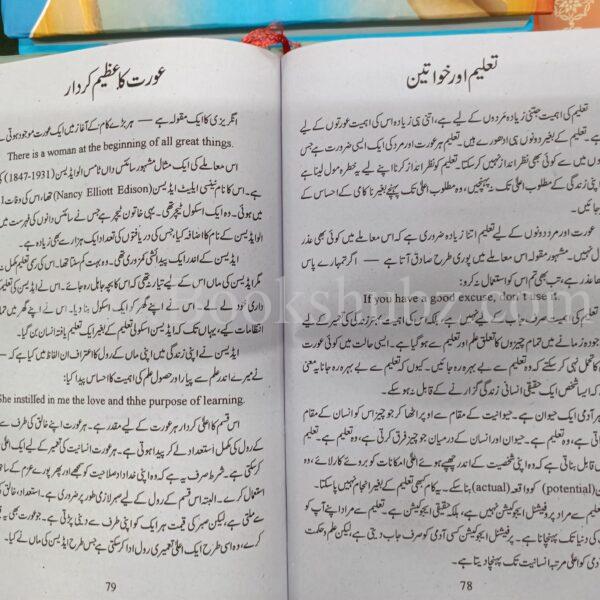 تعلیم اور خواتین
تعلیم کی اہمیت جتنی زیادہ مردوں کے لیے ہے، اتنی ہی زیادہ اس کی اہمیت عورتوں کے لیے
ہے۔ تعلیم کے بغیر دونوں ہی ادھورے ہیں۔ تعلیم ہر عورت اور مرد کی ایک ایسی ضرورت ہے جس
میں سے کوئی بھی نظر انداز نہیں کر سکتا۔ تعلیم کو نظر انداز کرنا اپنے لیے یہ خطرہ مول لینا ہے
اپنی زندگی کے مطلوب اعلیٰ تک نہ پہنچیں، وہ مطلوب اعلیٰ تک پہنچے بغیر ناکامی کے احساس کے
جائیں۔
عورت اور مرد دونوں کے لیے تعلیم اتنا زیادہ ضروری ہے کہ اس معاملے میں کوئی بھی عذر
نہیں۔ مشہور مقولہ اس معاملے میں پوری طرح صادق آتا ہے — اگر تمہارے پاس
عذر ہے، تب بھی تم اس کو استعمال نہ کرو:
If you have a good excuse, don't use it.
تعلیم کی اہمیت صرف جاب کے لیے نہیں ہے، بلکہ اس کی اہمیت بہتر زندگی کی تعمیر کے لیے
موجودہ زمانے میں تمام چیزوں کا تعلق علم اور تعلیم سے ہو گیا ہے۔ ایسی حالت میں کوئی عورت
کا تحمل نہیں کر سکتے کہ وہ تعلیم سے بے بہرہ رہ جائیں۔ کیوں کہ تعلیم سے بے بہرہ رہ جانا یہ معنی
کہ ایسا شخص ایک حقیقی انسانی زندگی گزارنے کے قابل نہ ہو سکے۔
ہر آدمی ایک حیوان ہے۔ حیوانیت کے مقام سے اوپر اٹھا کر جو چیز اس کو انسان کے مقام
ہے، وہ تعلیم ہے۔ حیوان اور انسان کے درمیان جو چیز فرق کرتی ہے، وہ تعلیم ہے۔ تعلیم
قابل بناتی ہے کہ وہ اپنی شخصیت کے اندر چھپے ہوئے اعلیٰ امکانات کو بروئے کار لائے، وہ
(potential) کو واقعہ (actual) بنا سکے۔ یہ کام کبھی تعلیم کے بغیر انجام نہیں پا سکتا۔
تعلیم سے مراد پروفیشنل ایجوکیشن نہیں ہے، بلکہ حقیقی ایجوکیشن ہے۔ تعلیم سے مراد اپنے آپ کو
کی دنیا تک پہنچانا ہے۔ پروفیشنل ایجوکیشن کسی آدمی کو صرف جاب دیتی ہے، لیکن علم و حکمت
آدمی کو اعلیٰ مرتبہ انسانیت تک پہنچا دیتا ہے۔
78
عورت کا عظیم کردار
انگریزی کا ایک مقولہ ہے — ہر بڑے کام کے آغاز میں ایک عورت موجود ہوتی ہے
There is a woman at the beginning of all great things.
اس معاملے کی ایک مثال مشہور سائنس داں ٹامس الوا ایڈیسن (1847-1931) کی
ہے۔ اس کا نام نینسی ایلیٹ ایڈیسن (Nancy Elliott Edison) تھا، اس کی وفات
میں ہوئی۔ وہ ایک اسکول ٹیچر تھی۔ یہی خاتون ٹیچر ہے جس نے سائنس دانوں کی فہرست میں
الوا ایڈیسن کے نام کا اضافہ کیا، جس کی دریافتوں کی تعداد ایک ہزار سے بھی زیادہ ہے۔
ایڈیسن کے اندر ایک پیدائشی کمزوری تھی۔ وہ بہت کم سنتا تھا۔ اس کی رسمی تعلیم مکمل نہ
مگر ایڈیسن کی ماں اس کے لیے تیار نہ تھی کہ اس کا بچہ جاہل رہ جائے۔ اس نے ایڈیسن کی تعلیم کی
داری خود لے لی۔ اس نے اپنے گھر کو ایک اسکول بنا دیا۔ اس نے اپنے گھر میں تمام
انتظامات کیے، یہاں تک کہ ایڈیسن اسکولی تعلیم کے بغیر ایک تعلیم یافتہ انسان بن گیا۔
ایڈیسن نے اپنی زندگی میں اپنی ماں کے رول کا اعتراف ان الفاظ میں کیا ہے کہ —
نے میرے اندر علم سے پیار اور حصول علم کی اہمیت کا احساس پیدا کیا:
She instilled in me the love and thhe purpose of learning.
اس قسم کا اعلیٰ کردار ہر عورت کے لیے مقدر ہے۔ ہر عورت اپنے خالق کی طرف سے
کے رول کی مکمل استعداد لے کر پیدا ہوتی ہے۔ ہر عورت انسانیت کی تعمیر کے لیے ایک
کر سکتی ہے۔ شرط صرف یہ ہے کہ وہ اپنی خداداد صلاحیت کو سمجھے اور پھر پورے عزم کے ساتھ
استعمال کرے۔ البتہ اس قسم کے رول کے لیے صبر لازمی طور پر ضروری ہے۔ استعداد، خالق کی
سے ملتی ہے، لیکن صبر کی قیمت ہر ایک کو اپنی طرف سے دینی پڑتی ہے۔ جو عورت بھی یہ قیمت
کرے، وہ اسی طرح ایک اعلیٰ تعمیری رول ادا کر سکتی ہے جس طرح ایڈیسن کی ماں نے کیا۔
79